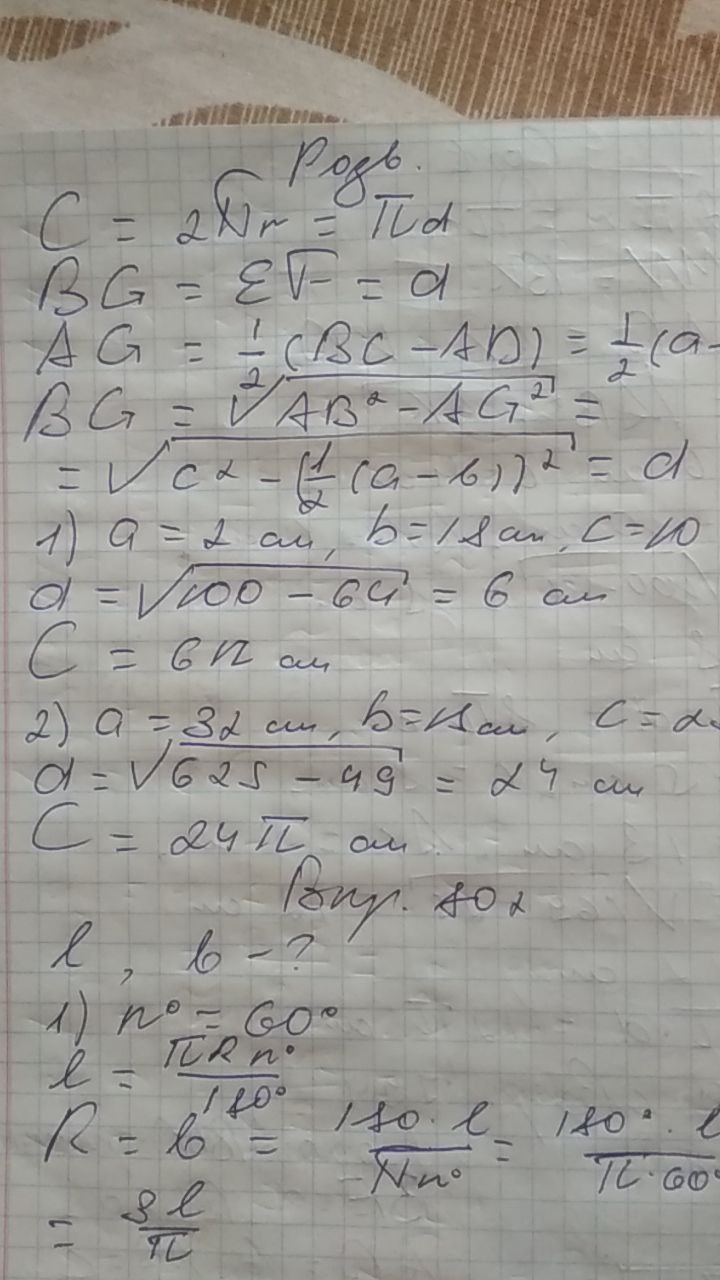 Розв.
C = 2πr = πd
BG = EF = d
AG = 1/2 (BC - AD) = 1/2 (a-
BG = √(AB² - AG²) =
= √(c² - (1/2 (a - b))²) = d
1) a = 2 см, b = 18 см, c = 10
d = √(100 - 64) = 6 см
C = 6π см
2) a = 32 см, b = 18 см, c = 2
d = √(625 - 49) = 24 см
C = 24π см
Впр.
l, b - ?
1) n° = 60°
l = πR n°/180°
R = b = 180 · l/πn° = 180° · l/π·60°
= 3l/π